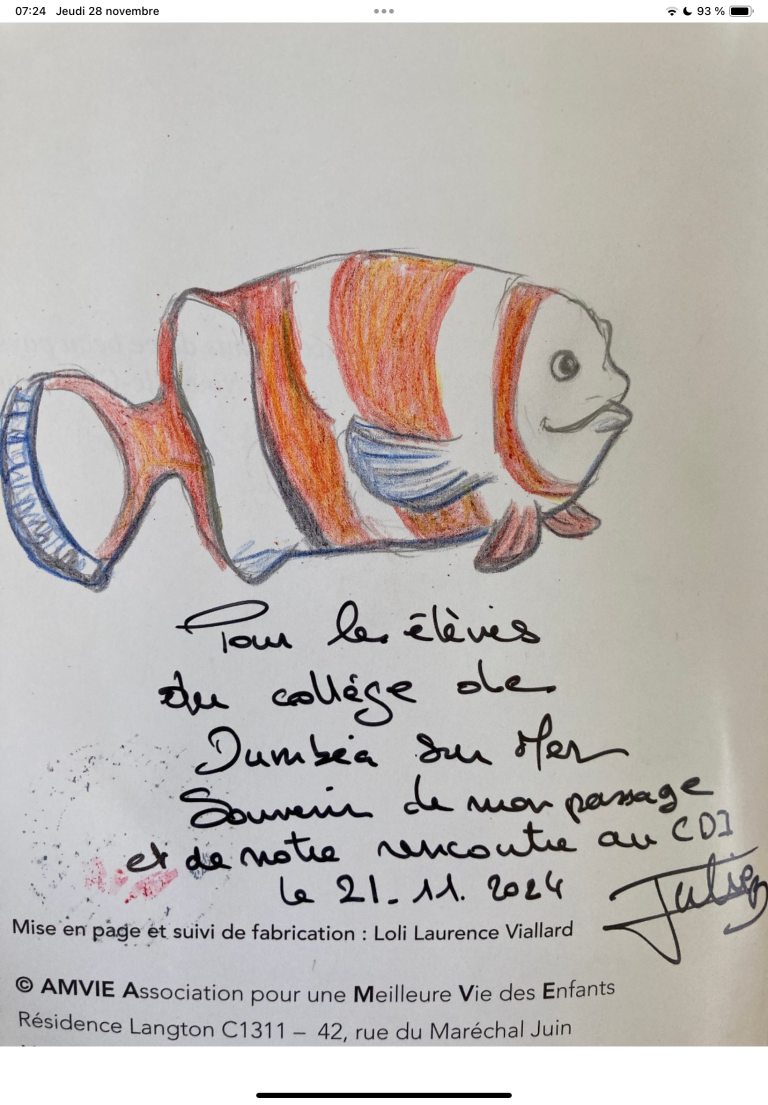 07:24 Jeudi 28 novembre
93 %
Pour les élèves
du collège de
Dumbéa sur Mer
Souvenir de mon passage
et de notre rencontre au CDI
le 21.11.2024
Mise en page et suivi de fabrication : Loli Laurence Viallard
© AMVIE Association pour une Meilleure Vie des Enfants
Résidence Langton C1311 – 42, rue du Maréchal Juin